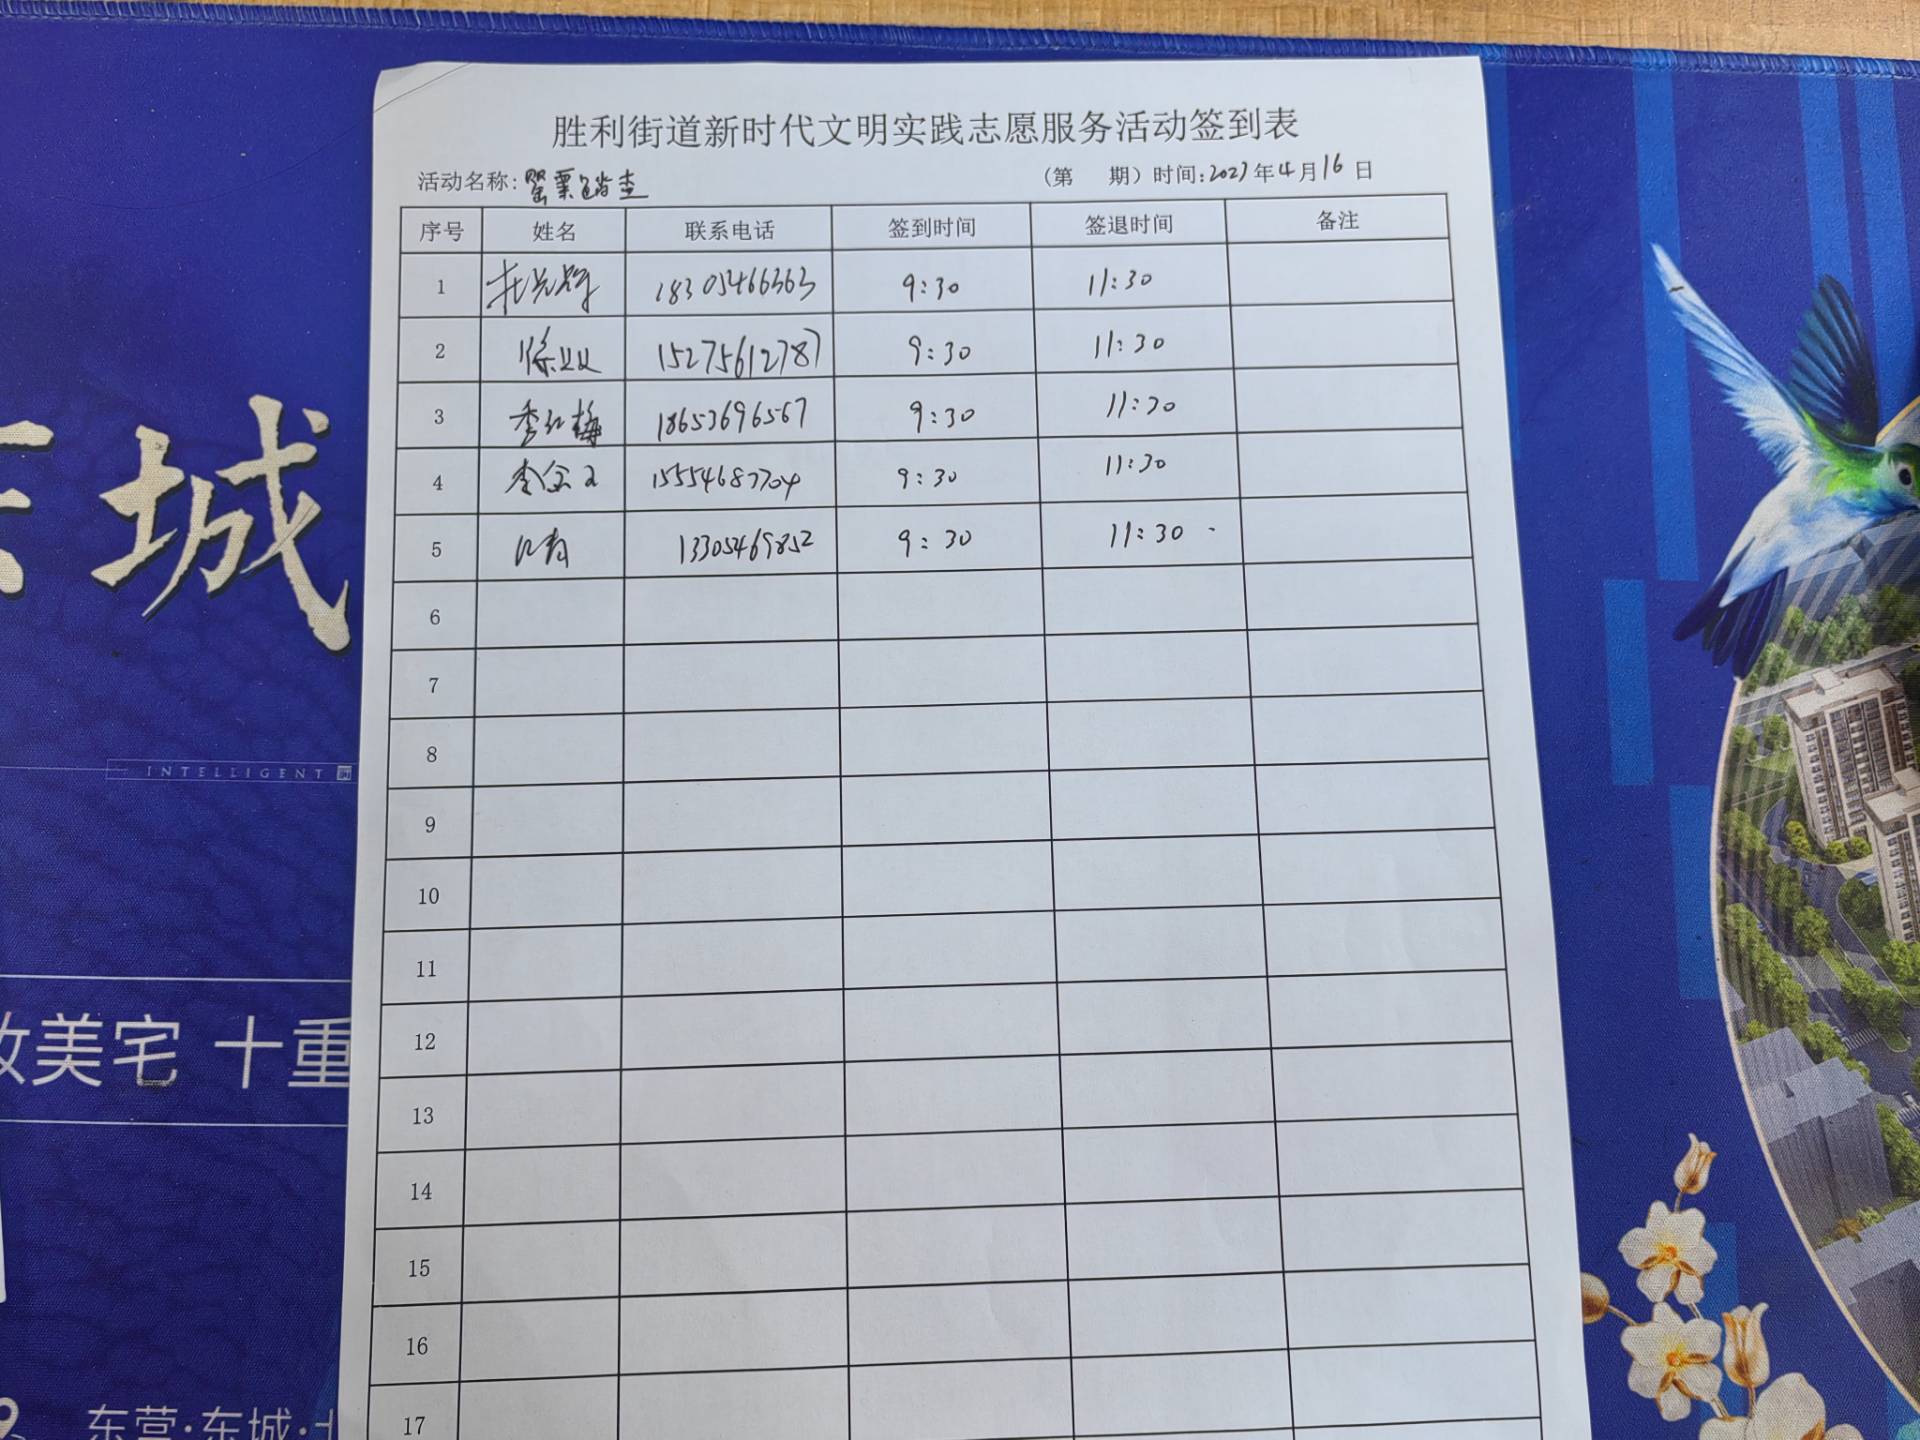 胜利街道新时代文明实践志愿服务活动签到表
活动名称:罂粟踏查 (第 期) 时间:2023年4月16日
序号 姓名 联系电话 签到时间 签退时间 备注
1 18305466363 9:30 11:30
2 15275612787 9:30 11:30
3 李红梅 18653696567 9:30 11:30
4 李金 15554687704 9:30 11:30
5 13305469852 9:30 11:30
6
7
8
9
10
11
12
13
14
15
16
17
城
INTELLIGENT
美宅 十重
东营·东城·